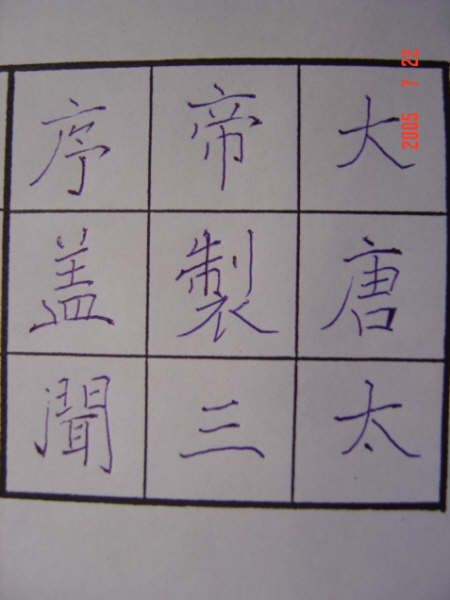 大唐太
帝製三
序盖聞
2005 7 22